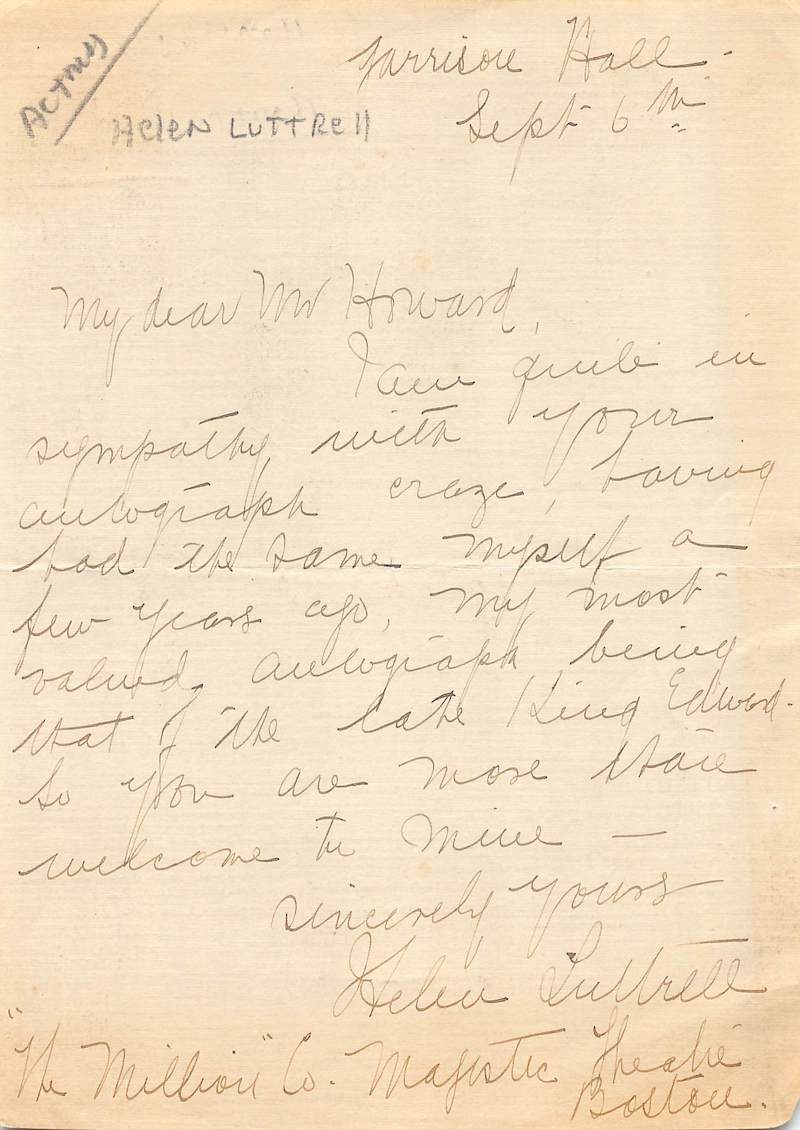 ACTRESS
HELEN LUTTRELL
Garrison Hall -
Sept 6th
My dear Mr Howard,
I am quite in
sympathy with your
autograph craze, having
had the same myself a
few years ago, my most
valued autograph being
that of the late King Edward -
so you are more than
welcome to mine -
sincerely yours
Helen Luttrell
"The Million" Co. Majestic Theatre
Boston.